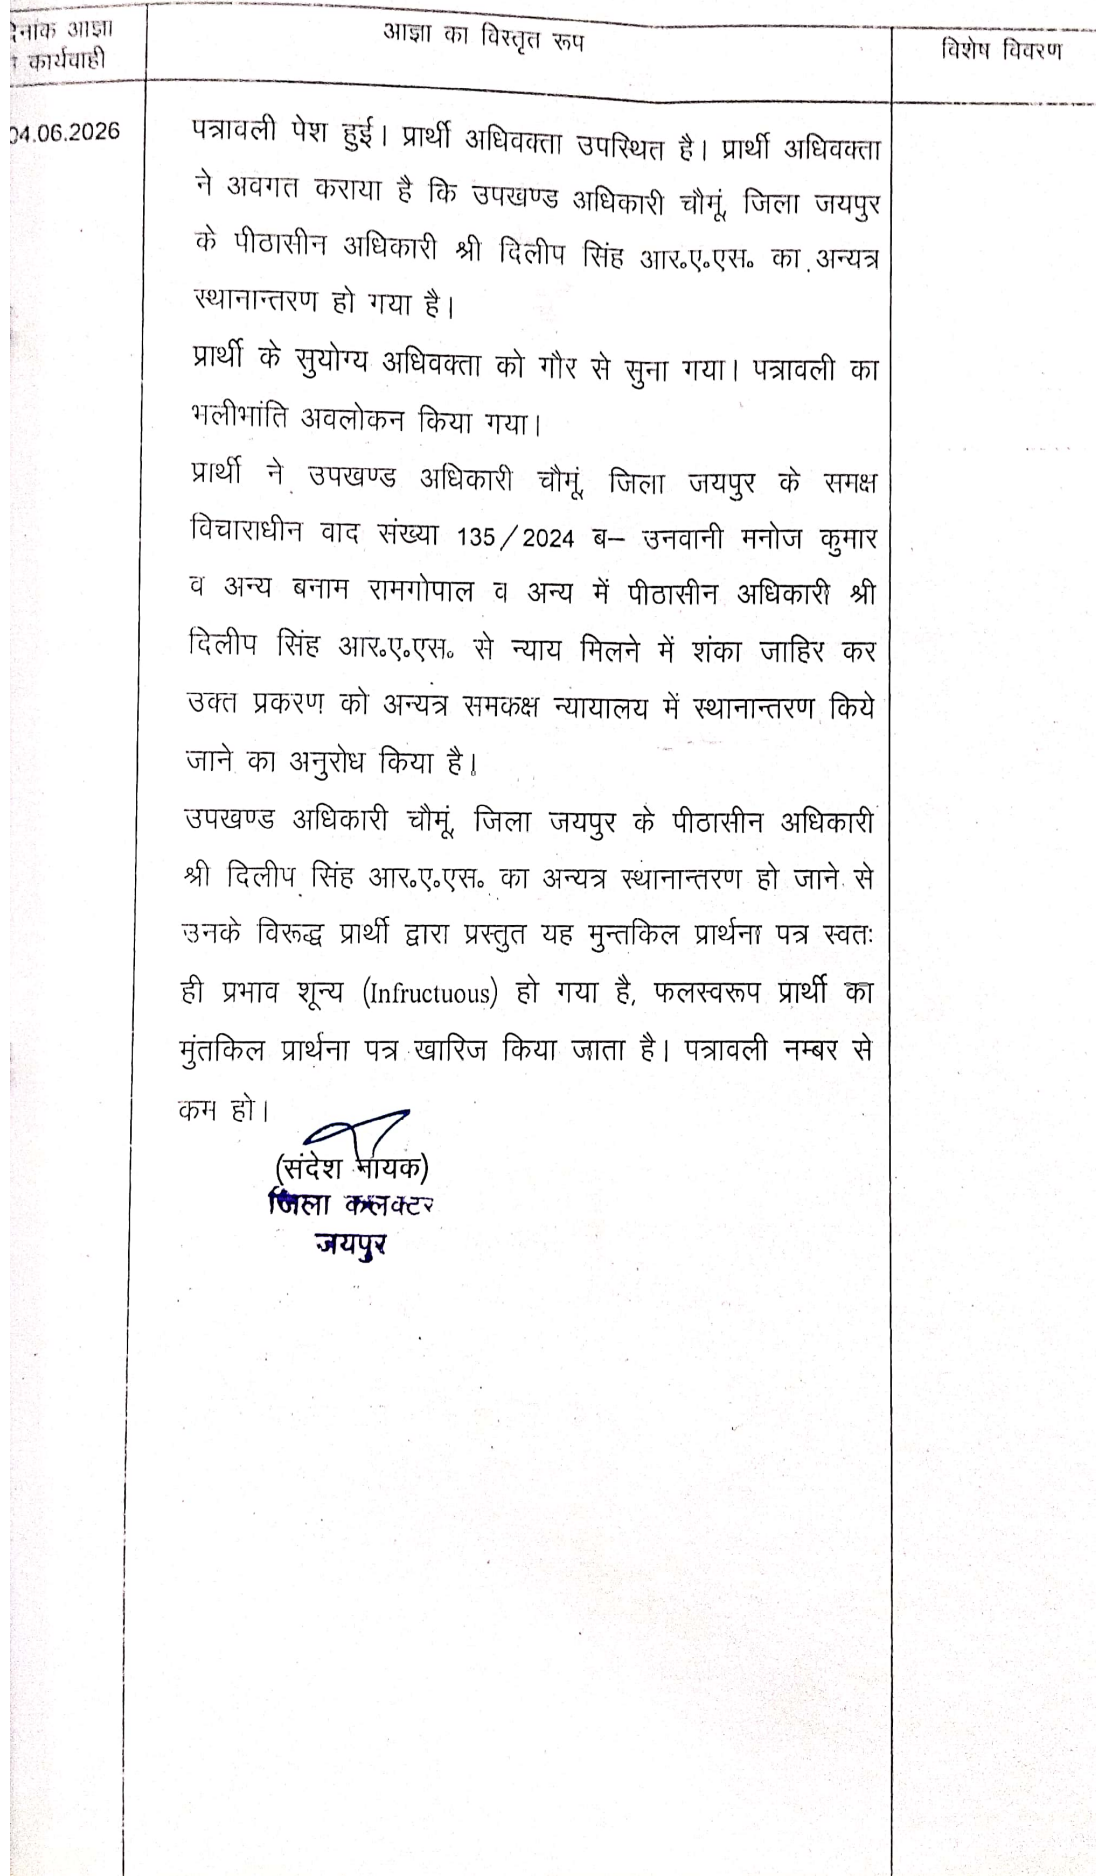 दिनांक आज्ञा
कार्यवाही
आज्ञा का विस्तृत रूप
विशेष विवरण
04.06.2026
पत्रावली पेश हुई। प्रार्थी अधिवक्ता उपस्थित है। प्रार्थी अधिवक्ता
ने अवगत कराया है कि उपखण्ड अधिकारी चौमूं, जिला जयपुर
के पीठासीन अधिकारी श्री दिलीप सिंह आर०ए०एस० का अन्यत्र
स्थानान्तरण हो गया है।
प्रार्थी के सुयोग्य अधिवक्ता को गौर से सुना गया। पत्रावली का
भलीभांति अवलोकन किया गया।
प्रार्थी ने उपखण्ड अधिकारी चौमूं, जिला जयपुर के समक्ष
विचाराधीन वाद संख्या 135/2024 ब– उनवानी मनोज कुमार
व अन्य बनाम रामगोपाल व अन्य में पीठासीन अधिकारी श्री
दिलीप सिंह आर०ए०एस० से न्याय मिलने में शंका जाहिर कर
उक्त प्रकरण को अन्यत्र समकक्ष न्यायालय में स्थानान्तरण किये
जाने का अनुरोध किया है।
उपखण्ड अधिकारी चौमूं, जिला जयपुर के पीठासीन अधिकारी
श्री दिलीप सिंह आर०ए०एस० का अन्यत्र स्थानान्तरण हो जाने से
उनके विरूद्ध प्रार्थी द्वारा प्रस्तुत यह मुन्तकिल प्रार्थना पत्र स्वतः
ही प्रभाव शून्य (Infructuous) हो गया है, फलस्वरूप प्रार्थी का
मुंतकिल प्रार्थना पत्र खारिज किया जाता है। पत्रावली नम्बर से
कम हो।
(संदेश नायक)
जिला कलक्टर
जयपुर